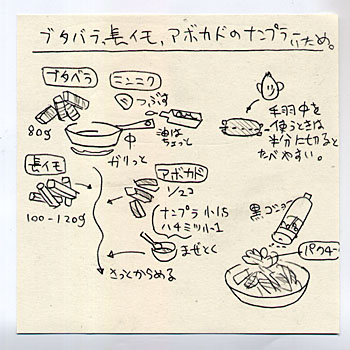 ブタバラ、長イモ、アボカドのナンプラーいため。
ブタバラ
ニンニク
つぶす
80g
中
油は
ちょっと
カリっと
手羽中を
使うときは
半分に切ると
たべやすい。
長イモ
100-120g
アボカド
1/2コ
ナンプラ 小1.5
ハチミツ 小1
まぜとく
さっとからめる
黒コショー
パクチー